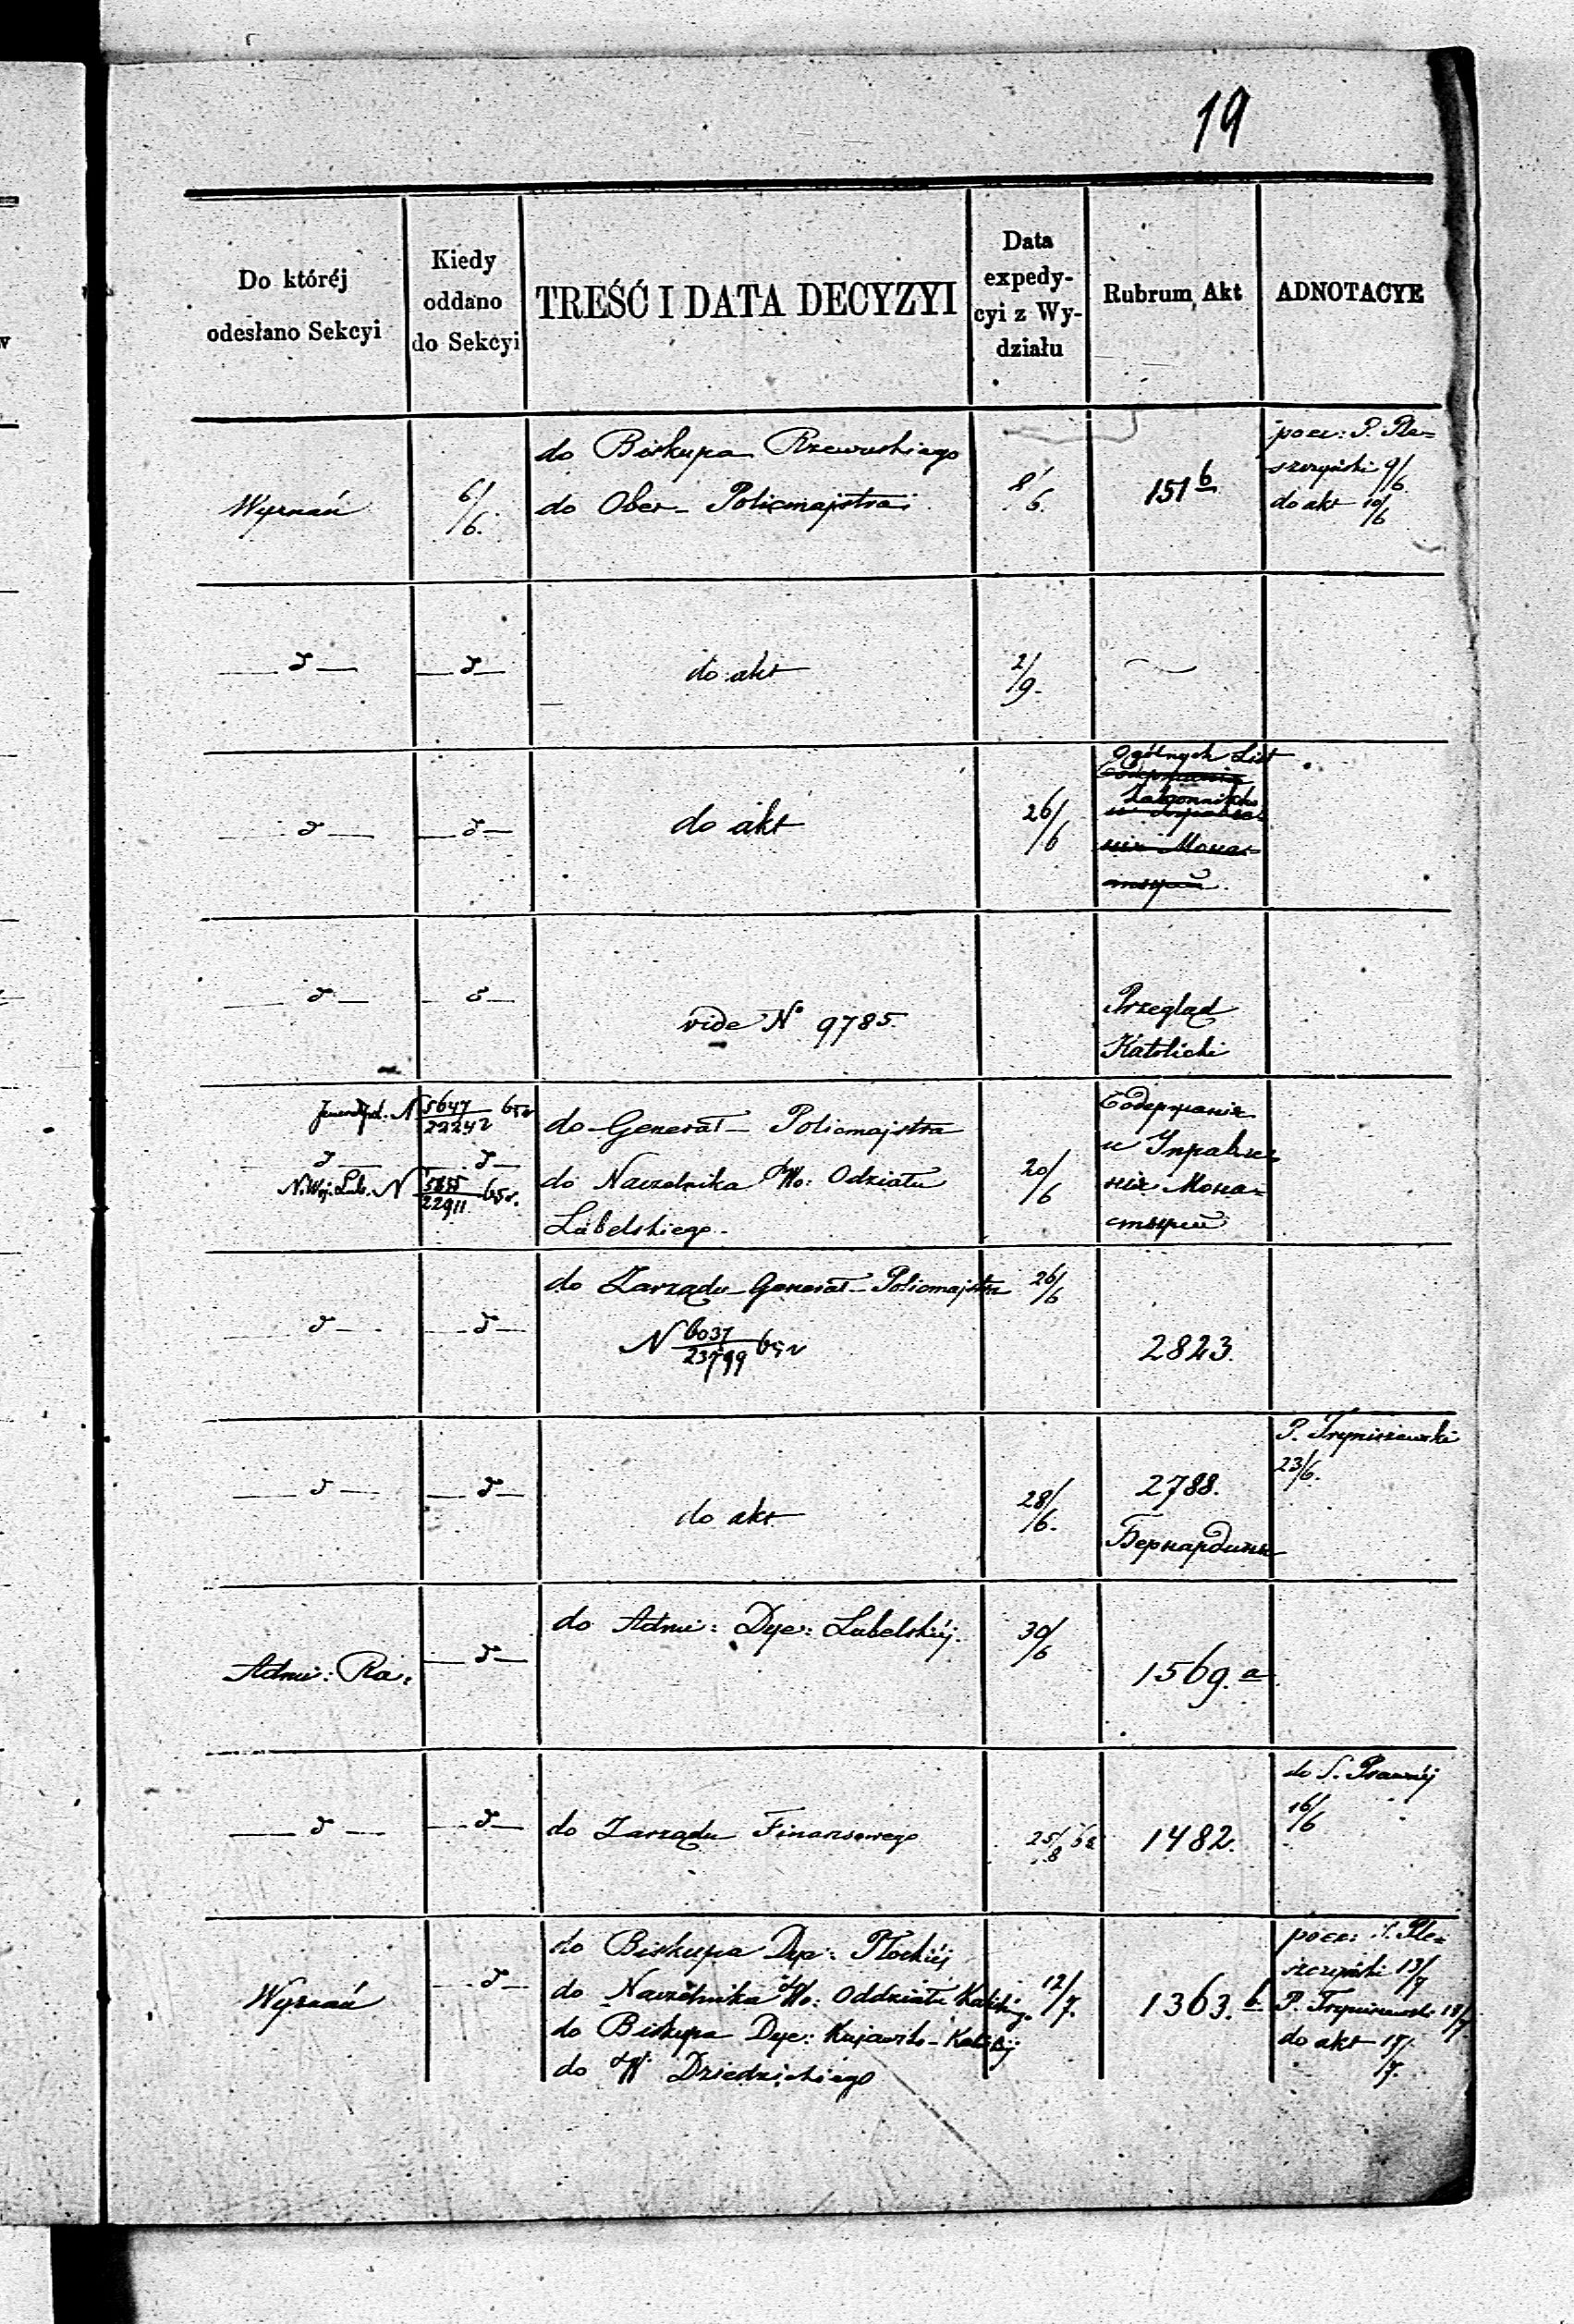 19
Do któréj
odesłano Sekcyi
Kiedy
oddano
do Sekcyi
TREŚĆ I DATA DECYZYI
Data
expedy-
cyi z Wy-
działu
Rubrum Akt
ADNOTACYE
Wyznań
6/6.
do Biskupa Rzewuskiego
do Ober-Policmajstra
8/6.
151 b
poew: P. Ple=
szczyński 9/6
do akt 10/6
do akt
2/9.
do akt
26/6
Ogólnych List
Zakonników
vide No 9785.
Przegląd
Katolicki
N 5647/22242 65 r
N. Woj. Lub. N 5855/22911 65 r.
do Generał-Policmajstra
do Naczelnika Wo: Odziału
Lubelskiego.
20/6
Содержанiе
и Управле=
нiе Мона=
стырей
do Zarządu Generał-Policmajstra
N 6037/23799 65 r
26/6
2823.
do akt
28/6.
2788.
Бернардины
P. Tryniszewski
23/6.
Admi: Ra:
do Admi: Dye: Lubelskiéj.
30/6
1569. a
do Zarządu Finansowego
25/8
1482.
do S. Prawnéj
16/6
Wyznań
do Biskupa Dye: Płockiéj
do Naczelnika Wo: Oddziału Kaliskieg.
do Biskupa Dye: Kujawsko-Kaliskiéj
do W Dziedzickiego
12/7.
1363. b
poew: P. Ple=
szczyński 13/7
P. Tryniszewski
do akt